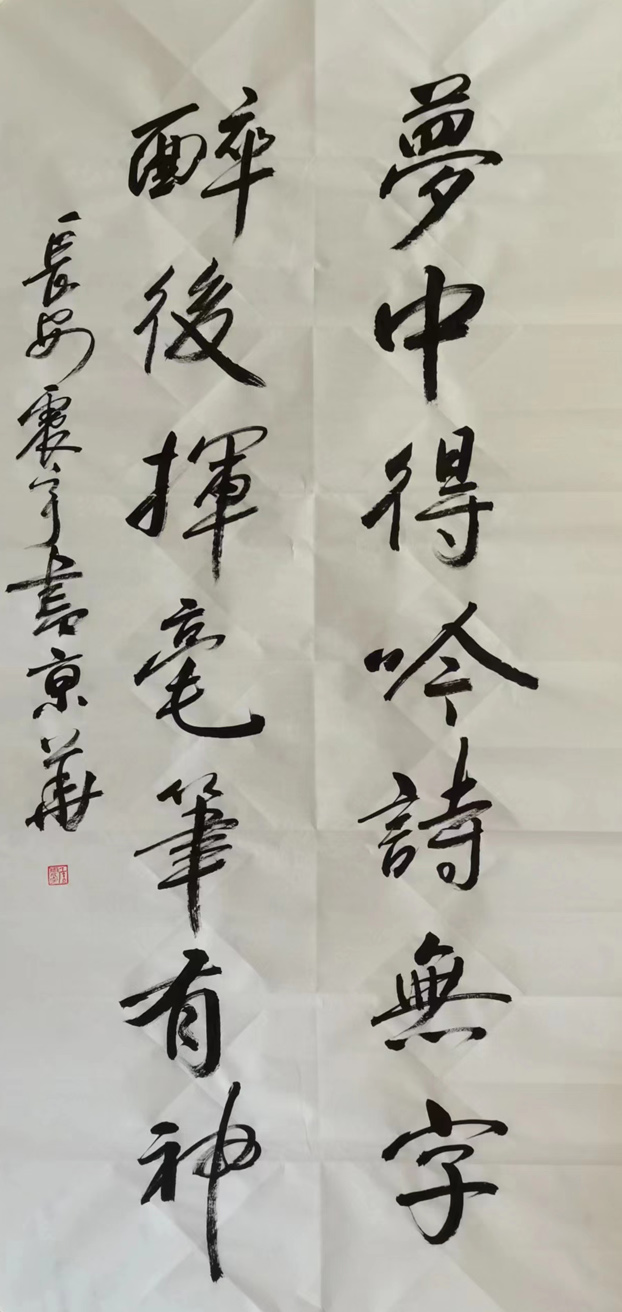 夢中得吟詩無字
醉後揮毫筆有神
長安震宇書京華